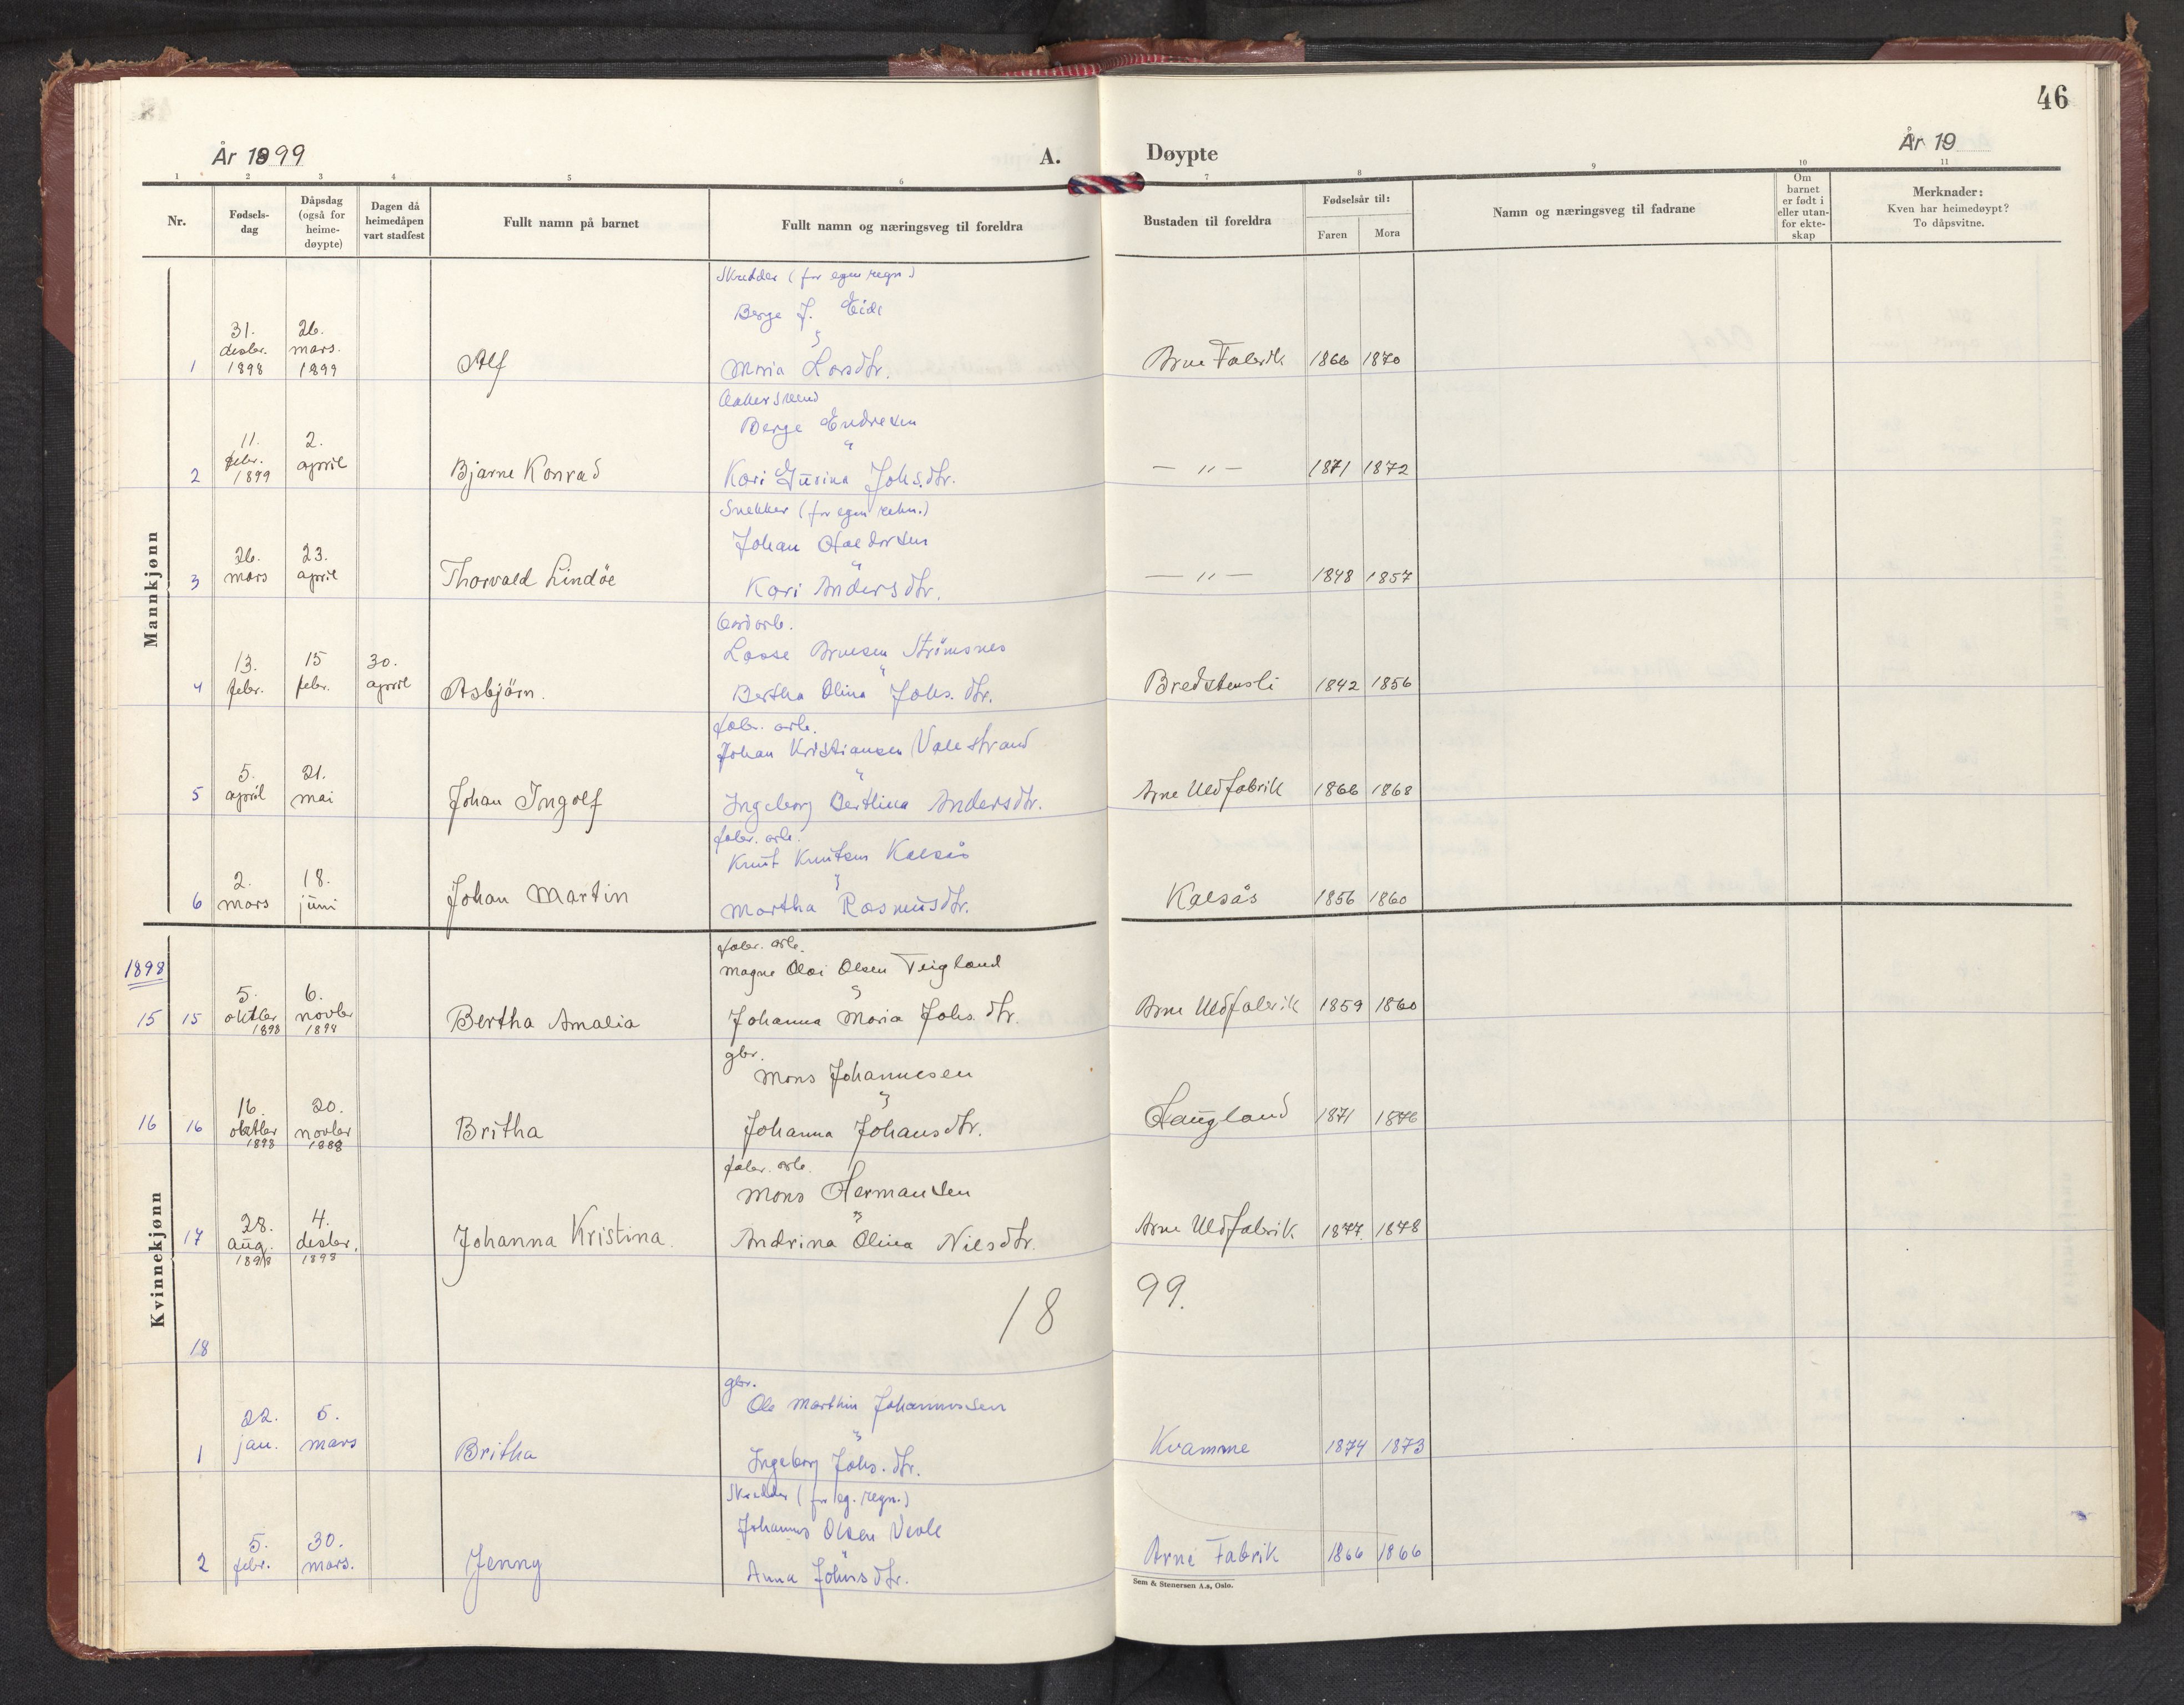 46
År 1899
A.
Døypte
År 19
1 2 3 4 5 6 7 8 9 10 11
Nr.
Fødsels-
dag
Dåpsdag
(også for
heime-
døypte)
Dagen då
heimedåpen
vart stadfest
Fullt namn på barnet
Fullt namn og næringsveg til foreldra
Bustaden til foreldra
Fødselsår til:
Faren
Mora
Namn og næringsveg til fadrane
Om
barnet
er født i
eller utan-
for ekte-
skap
Merknader:
Kven har heimedøypt?
To dåpsvitne.
Mannkjønn
Skredder (for egen regn)
Berge J. Eide
31. 26.
desbr. mars.
1 1898 1899 Alf Maria Larsdtr. Arne Fabrik 1866 1870
Berge Endresen
11. 2.
febr. april
2 1899 Bjarne Konrad Kari Gurina Johs.dtr. — " — 1871 1872
Snekker (for egen rekn.)
Johan Haldorsen
26. 23.
3 mars april Thorvald Lindöe Kari Andersdtr. — " — 1848 1857
Lasse Arnesen Strömsnes
13. 15 30.
4 febr. febr. april Asbjörn. Bertha Olina Johs. dtr. Bredstensli 1842 1856
fabr. arb.
Johan Kristiansen Valestrand
5. 21.
5 april mai Johan Ingolf Ingeborg Bertina Andersdtr. Arne Uldfabrik 1866 1868
fabr. arb.
Knut Knutsen Kalsås
2. 18.
6 mars juni Johan Martin Martha Rasmusdtr. Kalsås 1856 1860
Kvinnekjønn
fabr. arb.
1898 Magne Olai Olsen Teigland
5. 6.
15 15 oktbr novbr Bertha Amalia Johanna Maria Johs. dtr. Arne Uldfabrik 1859 1860
1898 1898
gbr.
Mons Johannesen
16. 20.
16 16 oktbr novbr Britha Johanna Johansdtr. Haugland 1871 1876
1898 1888
fabr. arb.
Mons Hermansen
28. 4.
17 aug. desbr. Johanna Kristina Andrina Olina Nilsdtr. Arne Uldfabrik 1877 1878
1898 1898
18 99.
18
gbr.
Ole Marthin Johannessen
22. 5.
1 jan. mars Britha Ingeborg Johs. dtr. Kvamme 1874 1873
Skredder (for eg. regn.)
Johannes Olsen Veole
5. 30.
2 febr. mars. Jenny Anna Johnsdtr. Arne Fabrik 1866 1866
Sem & Stenersen A.s, Oslo.